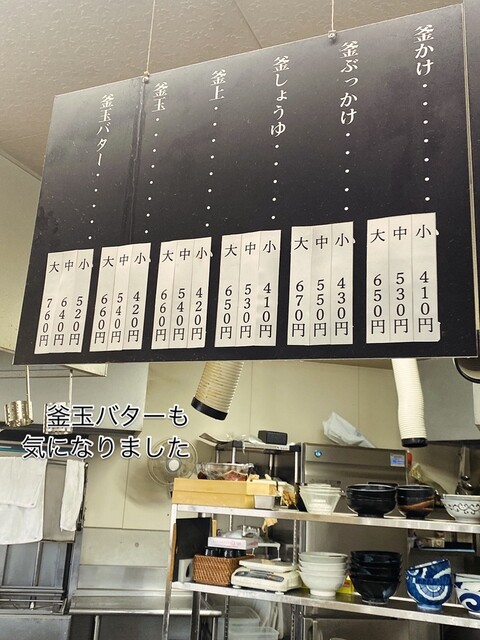 釜かけ・・・・・・・
小 410円
中 530円
大 650円
釜ぶっかけ・・・・・
小 430円
中 550円
大 670円
釜しょうゆ・・・・・
小 410円
中 530円
大 650円
釜上・・・・・・・
小 420円
中 540円
大 660円
釜玉・・・・・・・
小 420円
中 540円
大 660円
釜玉バター・・・・
小 520円
中 640円
大 760円
釜玉バターも
気になりました